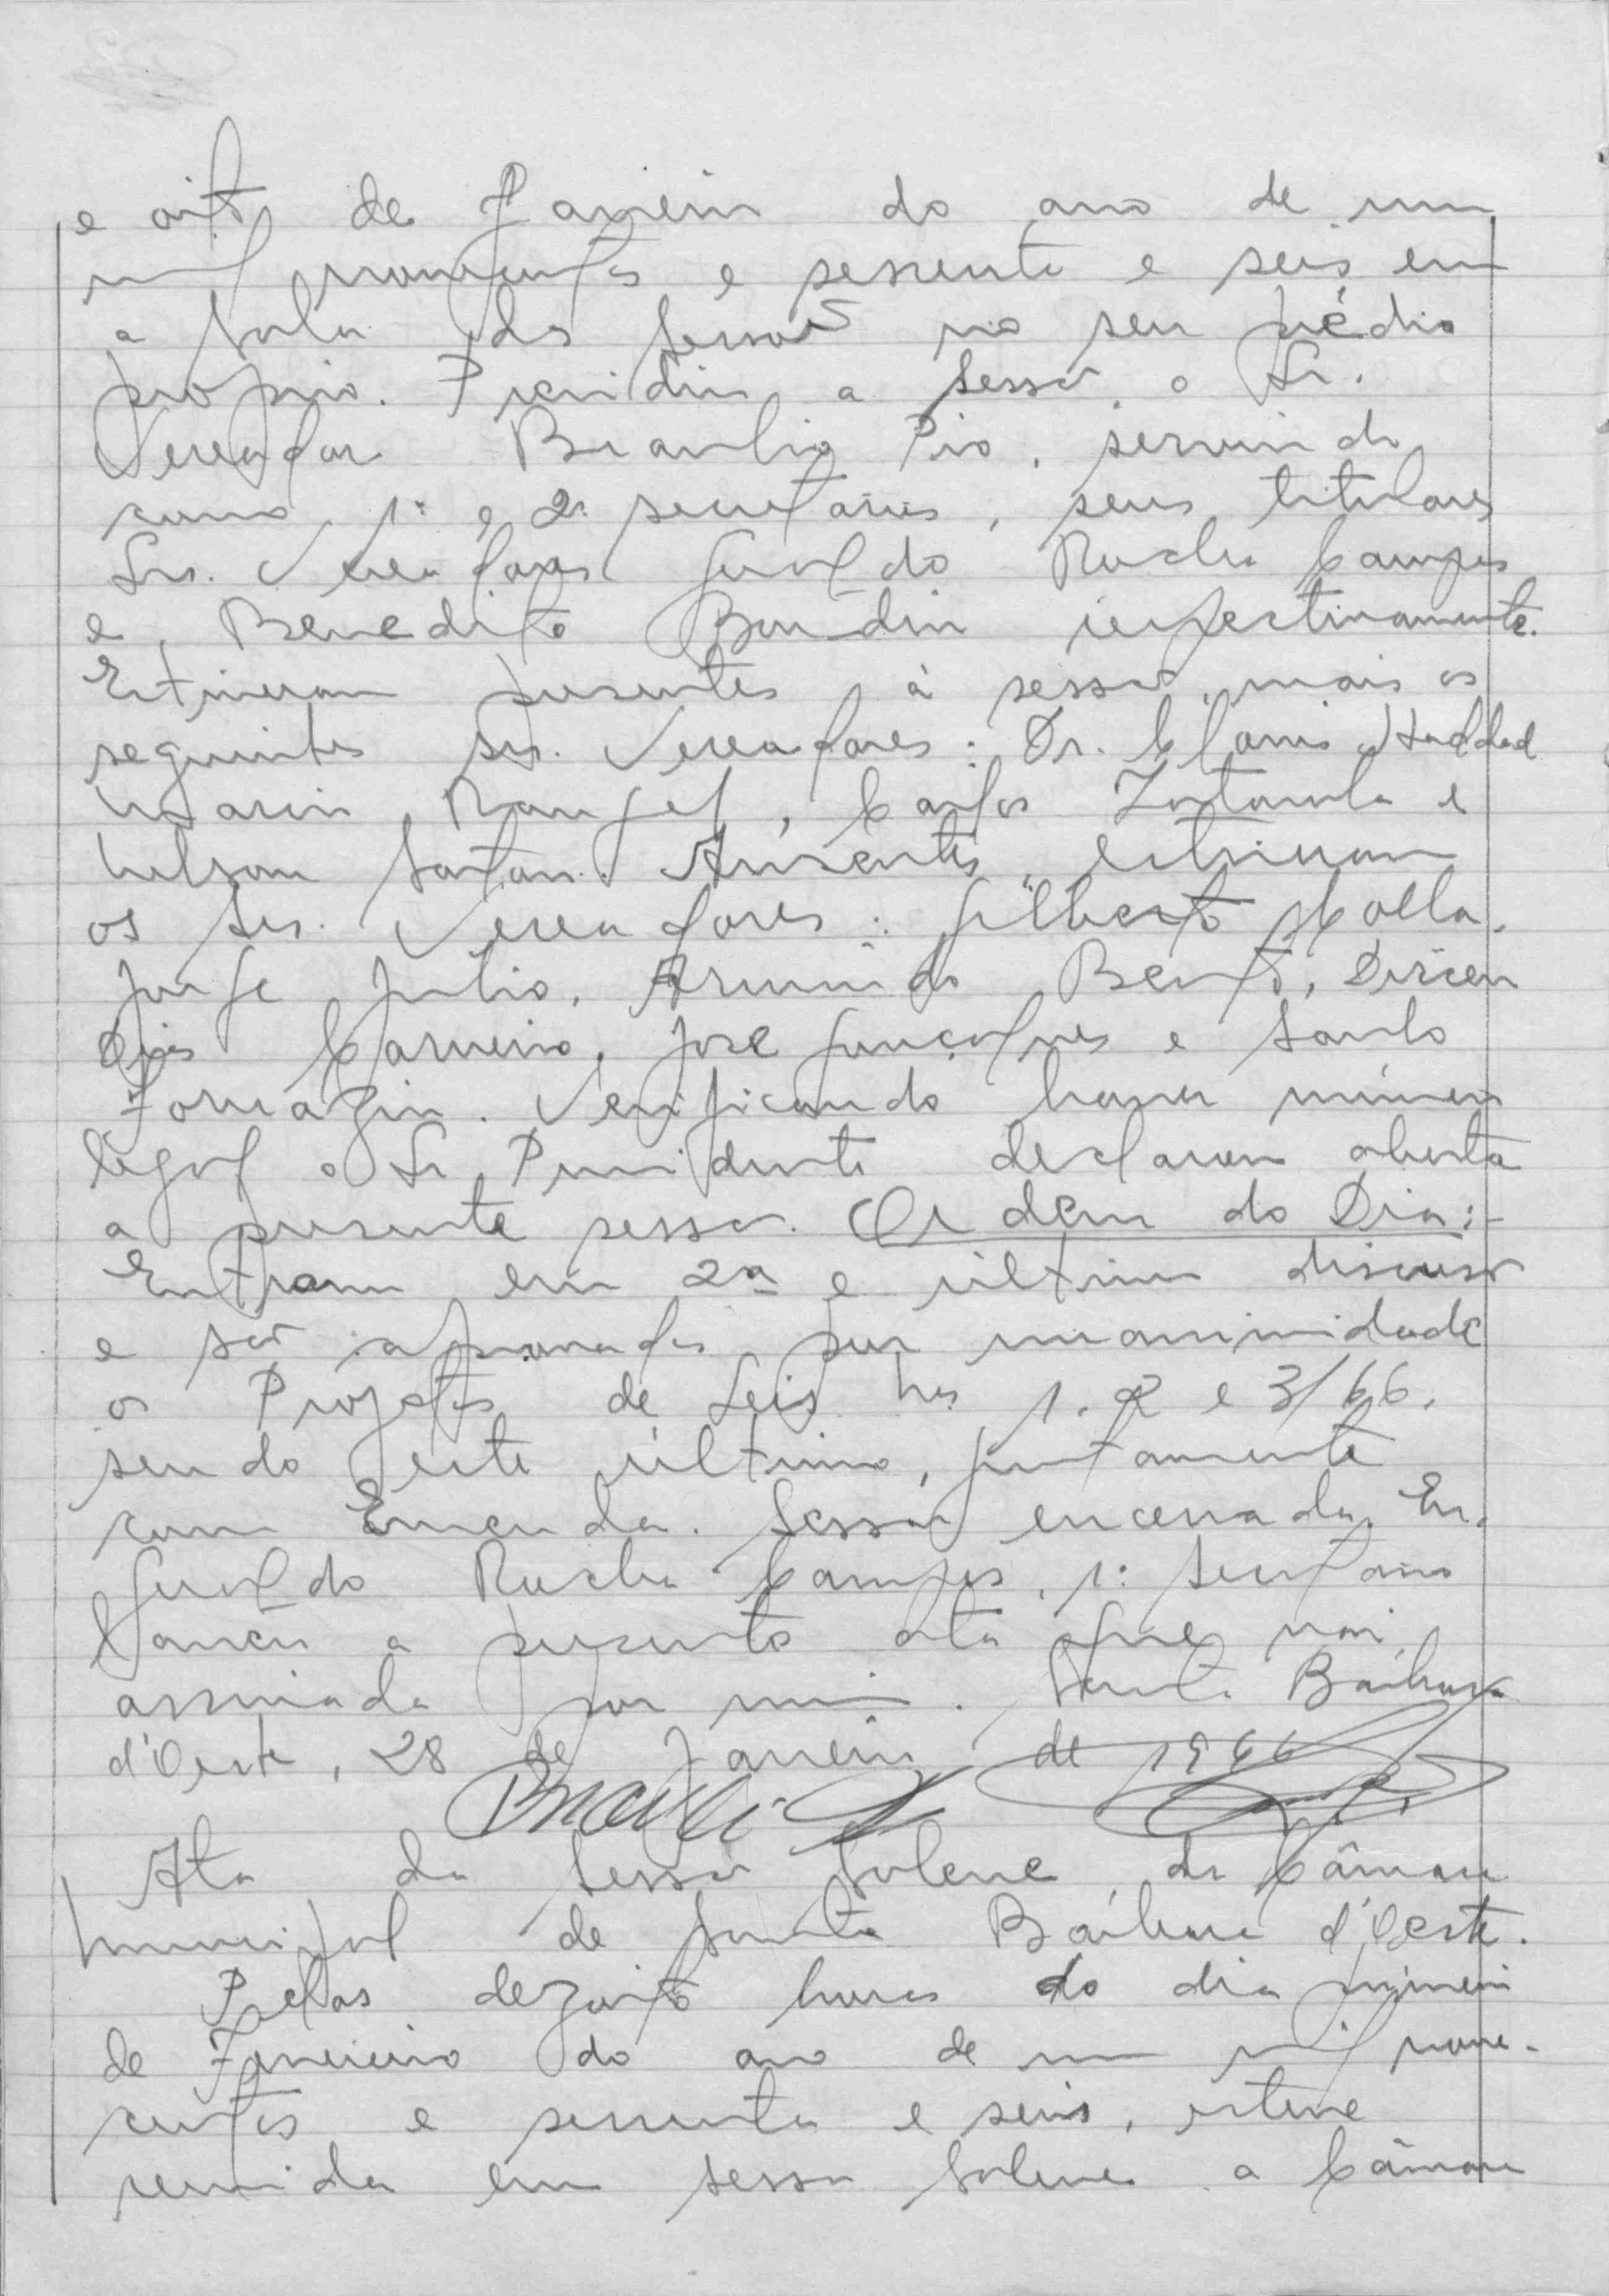 e oito de Janeiro do ano de um
mil novecentos e sessenta e seis em
a sala das sessões no seu prédio
proprio. Presidiu a sessão, o Sr.
Vereador Braulio Pio, servindo
como 1º e 2º secretarios, seus titulares
Srs. Vereadores Geraldo Rocha Campos
e, Benedito Bondin respectivamente.
Estiveram presentes à sessão, mais os
seguintes Srs. Vereadores: Dr. Clovis Haddad
Mario Rangel, Carlos e
Nelson Ausentes estiveram
os Srs. Vereadores: Gilberto
Jorge Julio, Armindo Bento, Dirceu
Dias Carneiro, José Gonçalves e Santo
Fornazin. Verificando haver número
legal o Sr. Presidente declarou aberta
a presente sessão. Ordem do Dia:-
Entram em 2ª e última discussão
e são aprovados por unanimidade
os Projetos de Leis Nos 1, 2 e 3/66,
sendo este último, juntamente
com Emenda. Sessão encerrada. Eu,
Geraldo Rocha Campos, 1º Secretario
lancei a presente ata que vai
assinada por mim. Santa Bárbara
d'Oeste, 28 de Janeiro de 1966
Braulio Pio
Ata da Sessão Solene da Câmara
Municipal de Santa Bárbara d'Oeste.
Pelas dezoito horas do dia primeiro
de Fevereiro do ano de um mil nove-
centos e sessenta e seis, esteve
reunida em sessão solene a Câmara